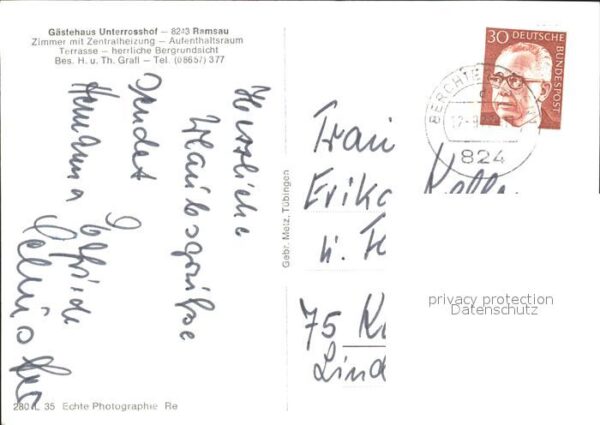 Gästehaus Unterrosshof – 8243 Ramsau
Zimmer mit Zentralheizung – Aufenthaltsraum
Terrasse – herrliche Bergrundsicht
Bes. H. u. Th. Graßl – Tel. (08657) 377
Herzliche
Urlaubsgrüße
sendet
Hermann
Elfriede
Gebr. Metz, Tübingen
30 DEUTSCHE BUNDESPOST
BERCHTE
824
Frau
Erika
u.
75
Lind
privacy protection
Datenschutz
280 L 35 Echte Photographie Re